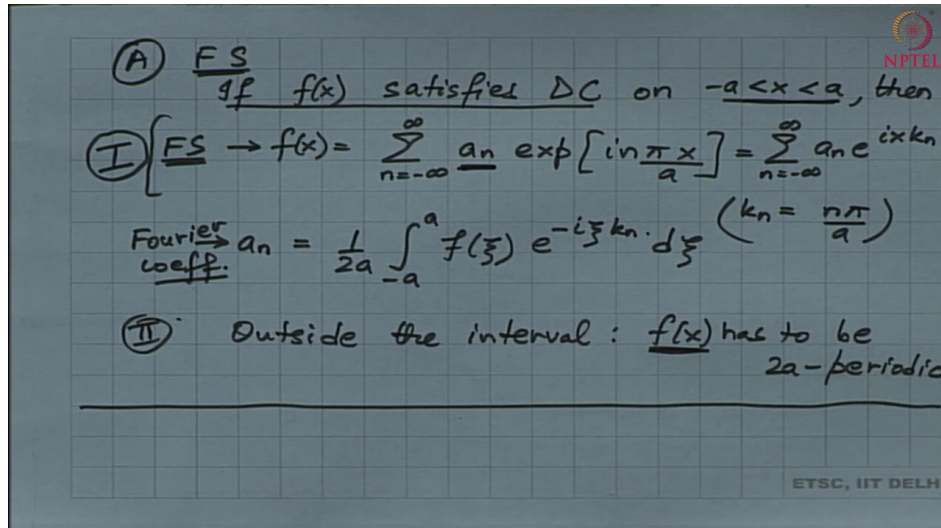 NPTEL
Ⓐ F S
If f(x) satisfies DC on -a<x<a, then
Ⓘ FS → f(x) = ∑_{n=-∞}^{∞} a_n exp[inπx/a] = ∑_{n=-∞}^{∞} a_n e^{ixk_n}
(k_n = nπ/a)
Fourier coeff. → a_n = 1/2a ∫_{-a}^{a} f(ξ) e^{-iξk_n}. dξ
Ⓘⓘ Outside the interval : f(x) has to be
2a-periodic
ETSC, IIT DELH